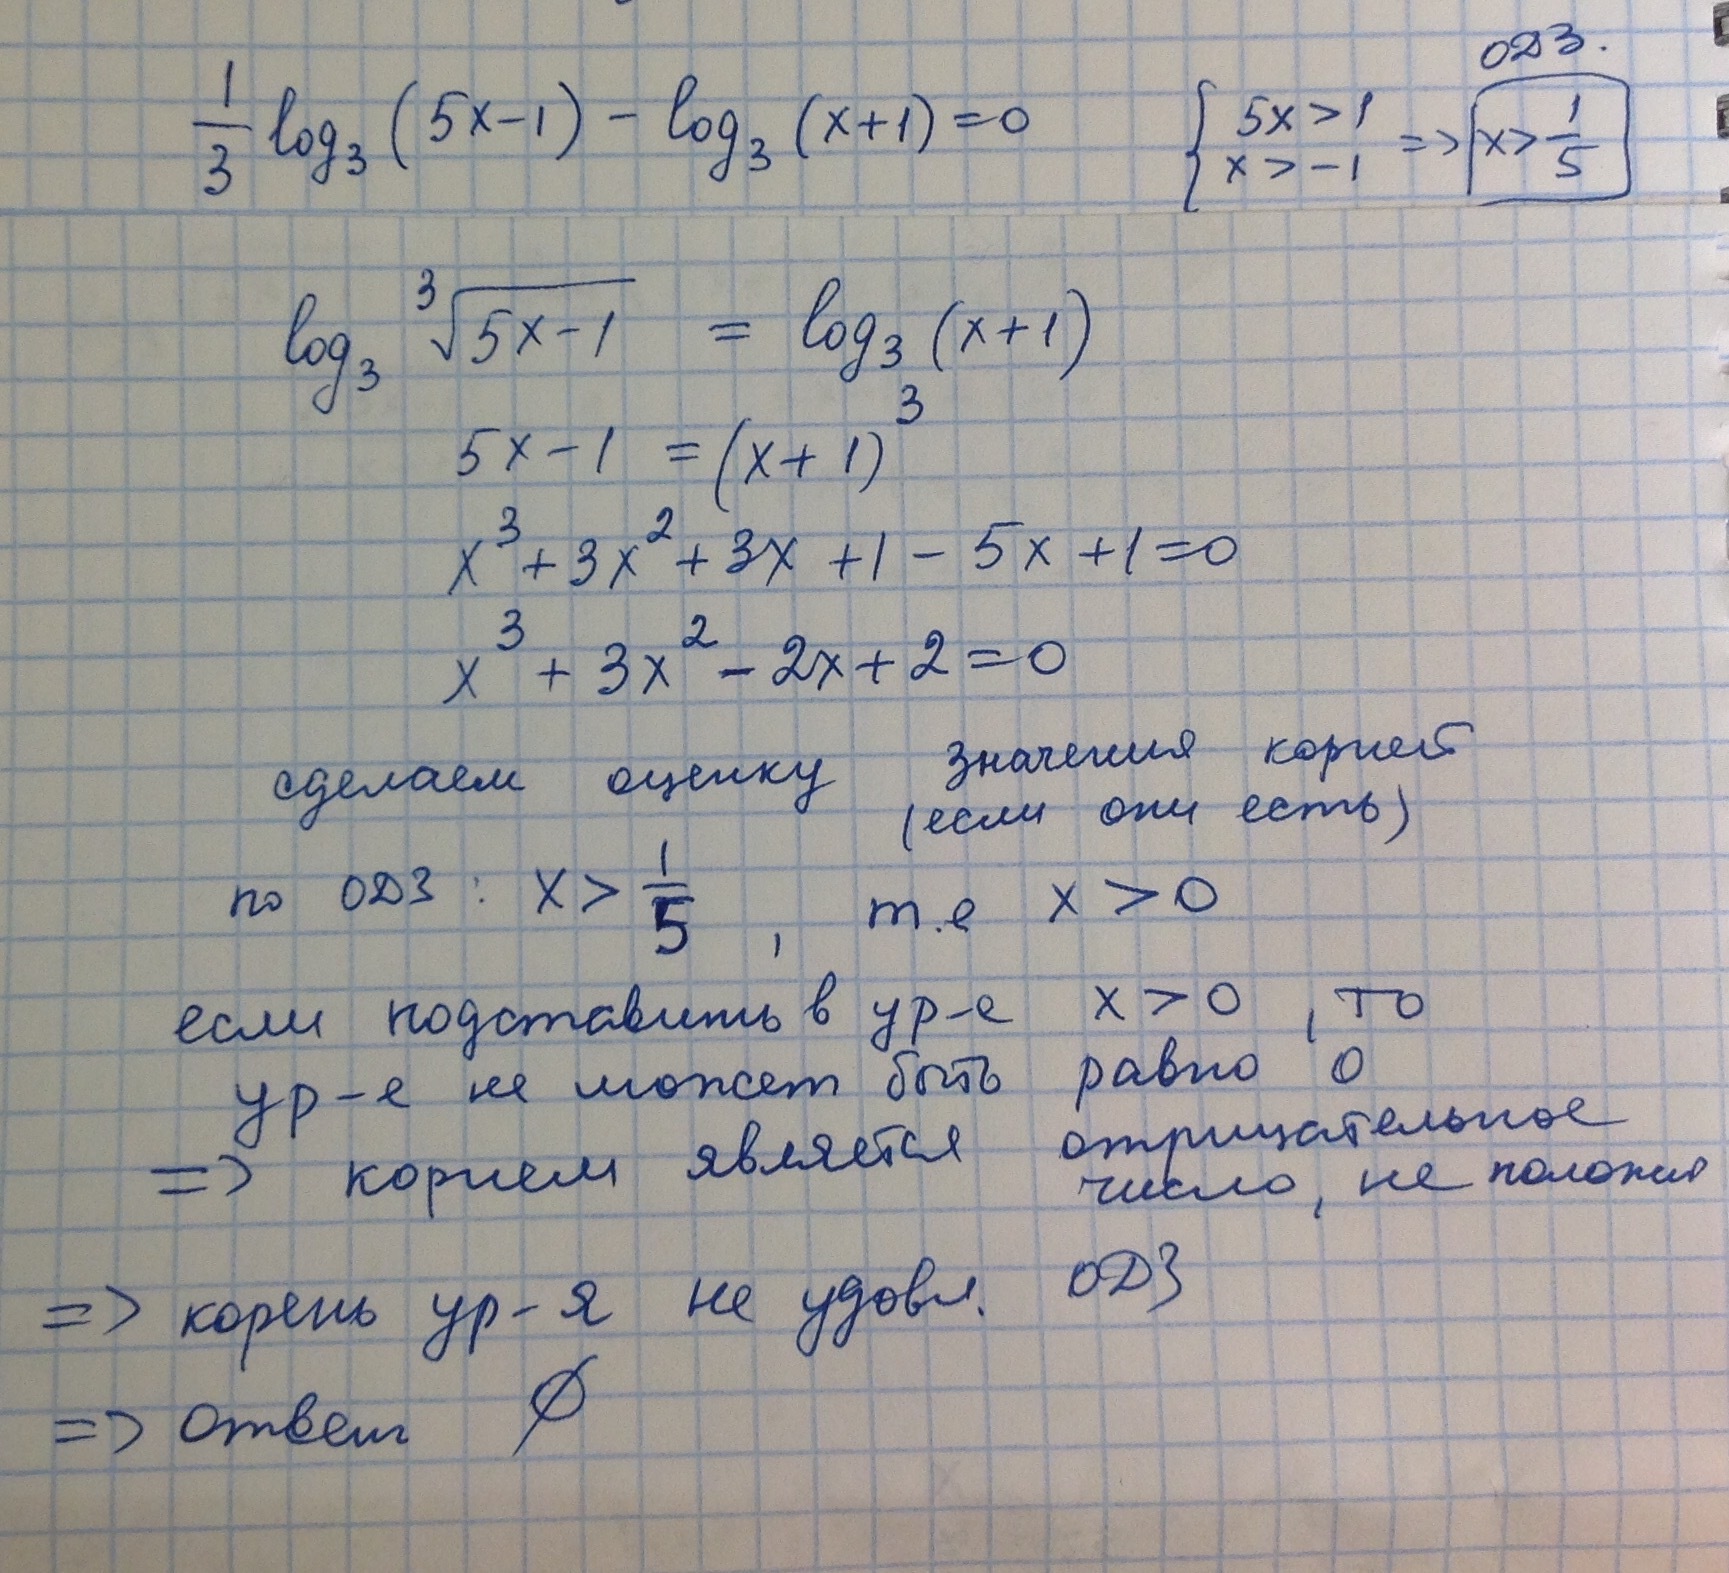 1/3 log₃(5x-1) - log₃(x+1) = 0
ОДЗ.
{ 5x > 1
x > -1 => x > 1/5
log₃ ∛(5x-1) = log₃(x+1)
5x-1 = (x+1)³
x³ + 3x² + 3x + 1 - 5x + 1 = 0
x³ + 3x² - 2x + 2 = 0
сделаем оценку значения корней
(если они есть)
по ОДЗ: x > 1/5, т.е x > 0
если подставить в ур-е x > 0, то
ур-е не может быть равно 0
=> корнем является отрицательное
число, не полож
=> корень ур-я не удовл. ОДЗ
=> ответ ∅